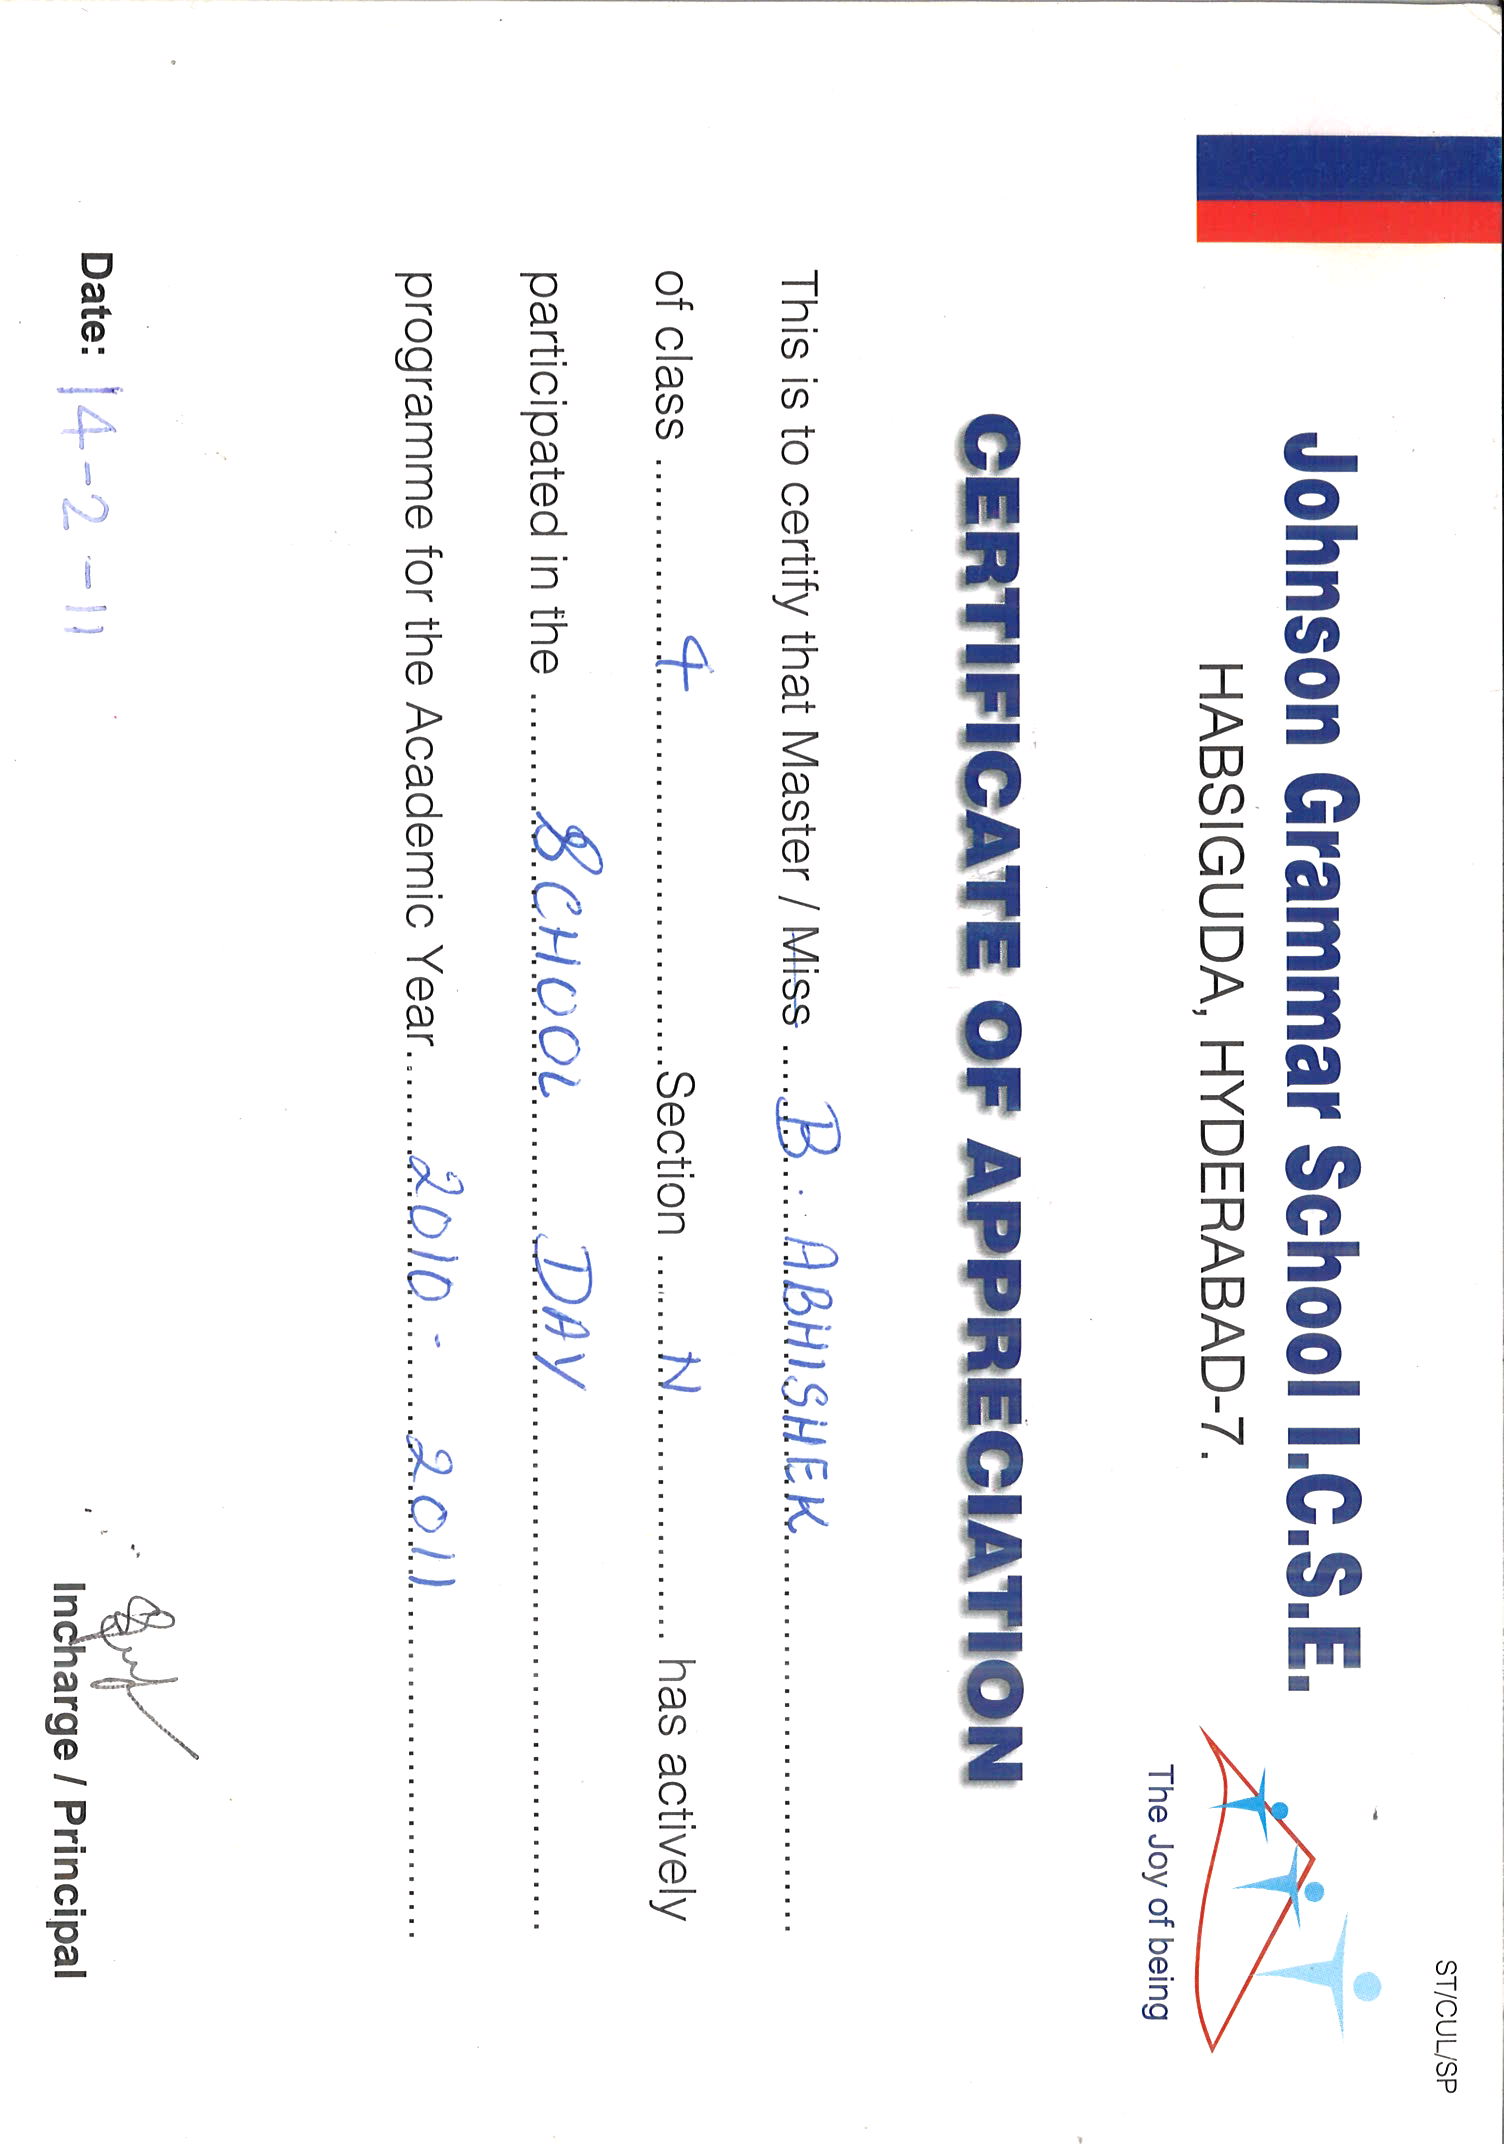 ST/CUL/SP
Johnson Grammar School I.C.S.E.
HABSIGUDA, HYDERABAD-7.
The Joy of being
CERTIFICATE OF APPRECIATION
This is to certify that Master / Miss B. ABHISHEK
of class 4 Section N has actively
participated in the SCHOOL DAY
programme for the Academic Year 2010 - 2011
Date: 14-2-11
Incharge / Principal